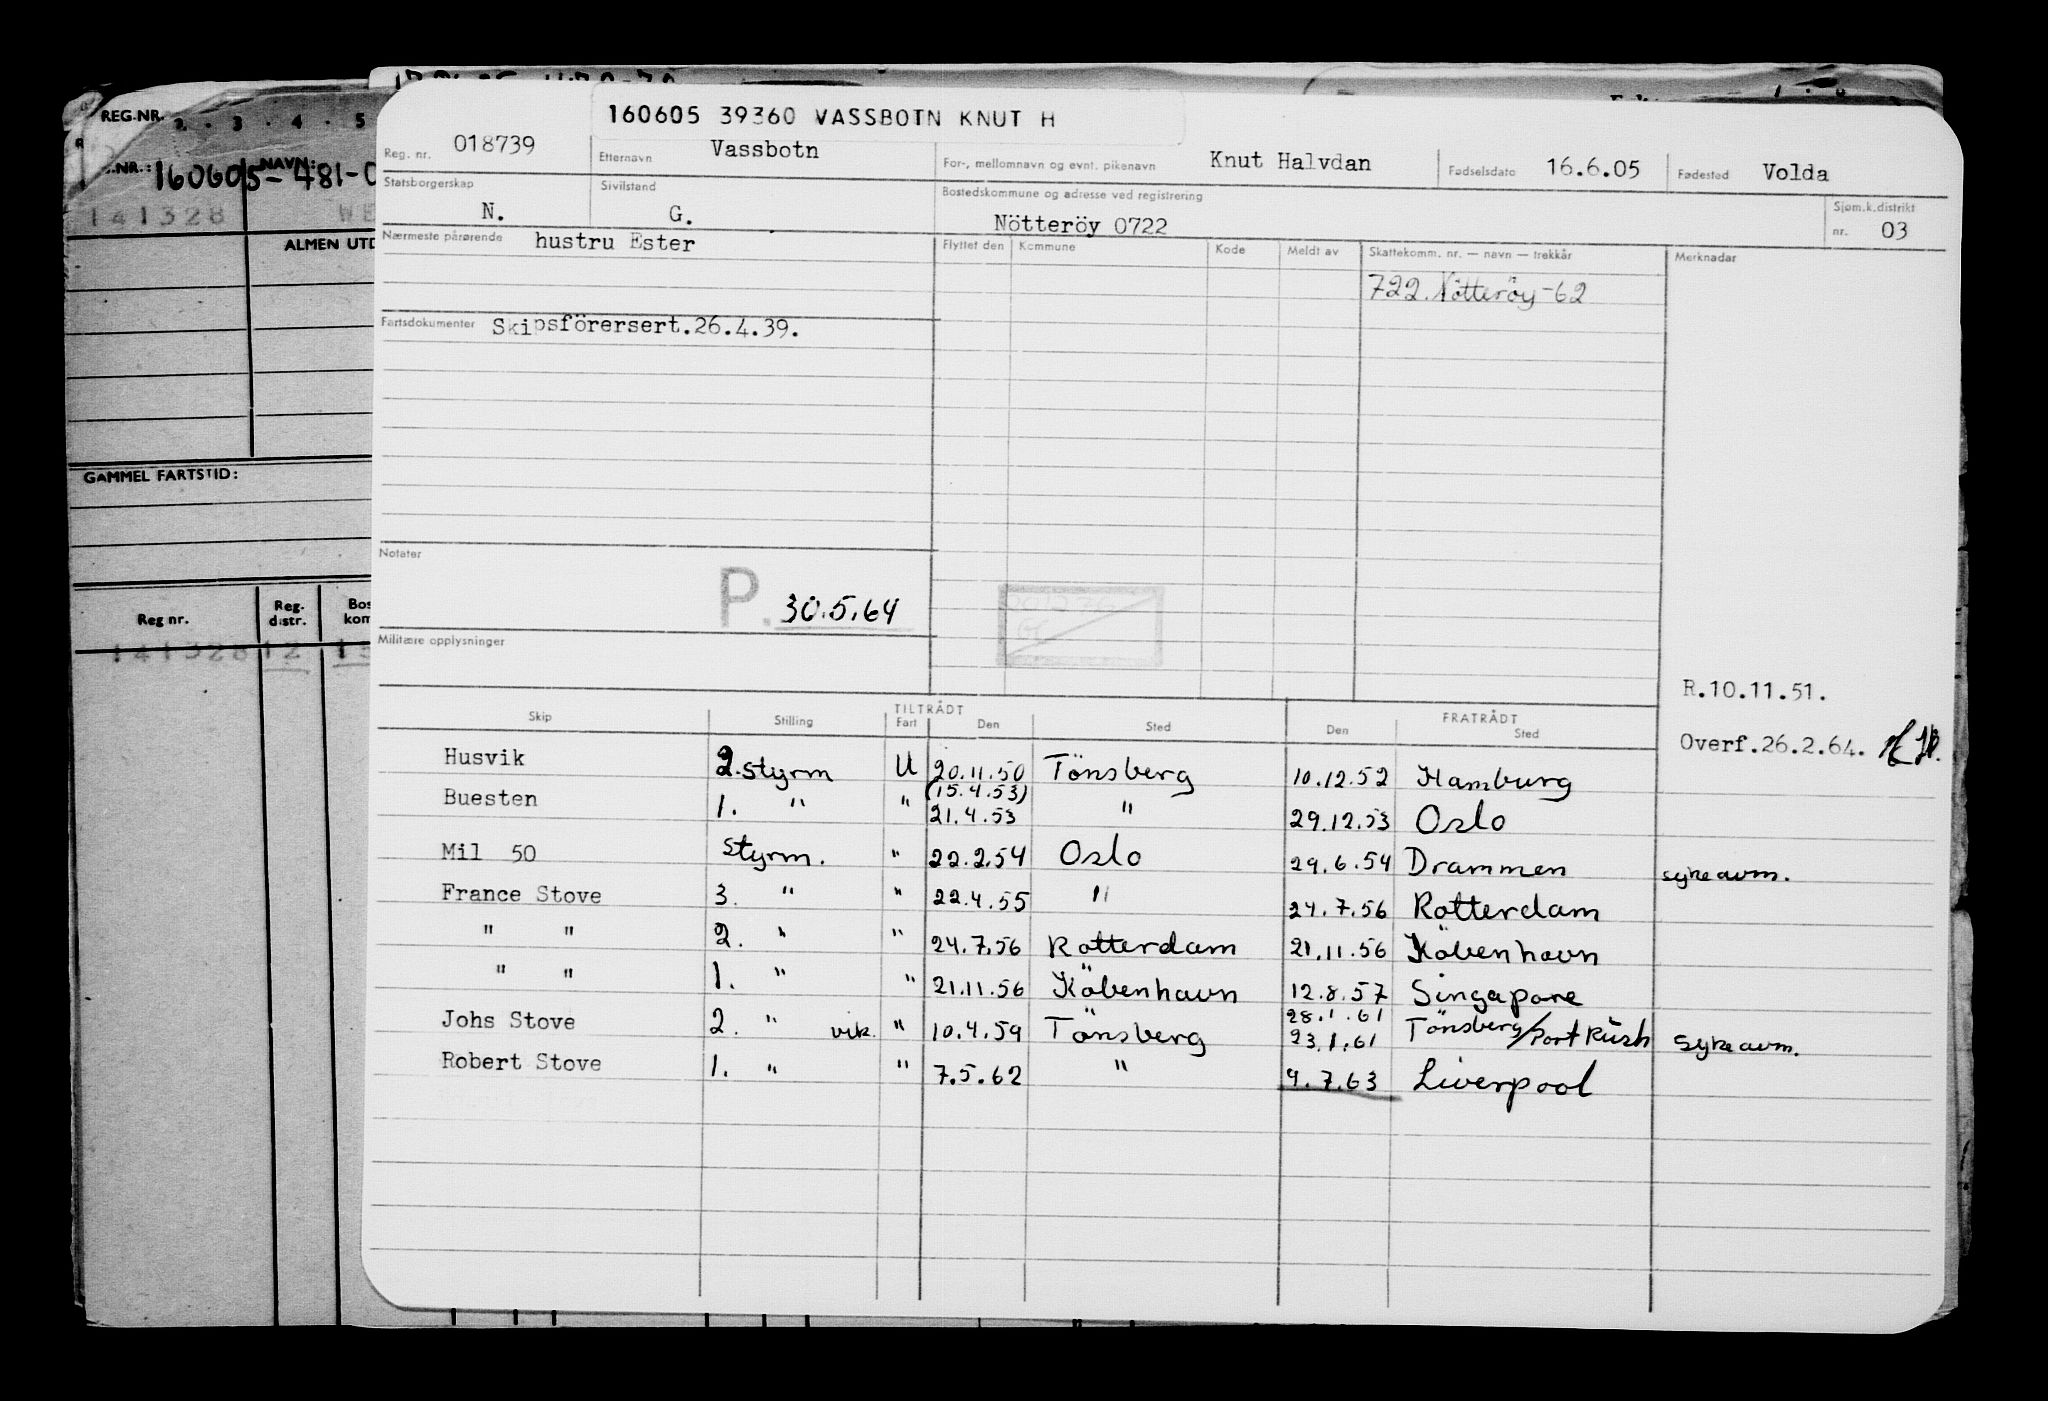 REG.NR.
2 . 3 . 4 . 5
.NR.: 160605-481-0
NAVN:
141328 WE
ALMEN UTD
GAMMEL FARTSTID:
Reg nr. Reg. distr. Bos kom
141328 12
160605 39360 VASSBOTN KNUT H
Reg. nr. 018739 Etternavn Vassbotn For-, mellomnavn og evnt. pikenavn Knut Halvdan Fødselsdato 16.6.05 Fødested Volda
Statsborgerskap N. Sivilstand G. Bostedskommune og adresse ved registrering Nötteröy 0722 Sjøm.k.distrikt nr. 03
Nærmeste pårørende hustru Ester Flyttet den Kommune Kode Meldt av Skattekomm. nr. — navn — trekkår Merknadar
722. Nötteröy-62
Fartsdokumenter Skipsförersert.26.4.39.
Notater
P. 30.5.64
Militære opplysninger
R.10.11.51.
Overf.26.2.64.
TILTRÅDT FRATRÅDT
Skip Stilling Fart Den Sted Den Sted
Husvik 2.styrm U 20.11.50 Tönsberg 10.12.52 Hamburg
(15.4.53)
Buesten 1. " " 21.4.53 " 29.12.53 Oslo
Mil 50 Styrm. " 22.2.54 Oslo 29.6.54 Drammen sykeavm.
France Stove 3. " " 22.4.55 " 24.7.56 Rotterdam
" " 2. " " 24.7.56 Rotterdam 21.11.56 Köbenhavn
" " 1. " " 21.11.56 Köbenhavn 12.8.57 Singapore
28.1.61
Johs Stove 2. " vik. " 10.4.59 Tönsberg 23.1.61 Tönsberg/Port Kish sykeavm.
Robert Stove 1. " " 7.5.62 " 9.7.63 Liverpool